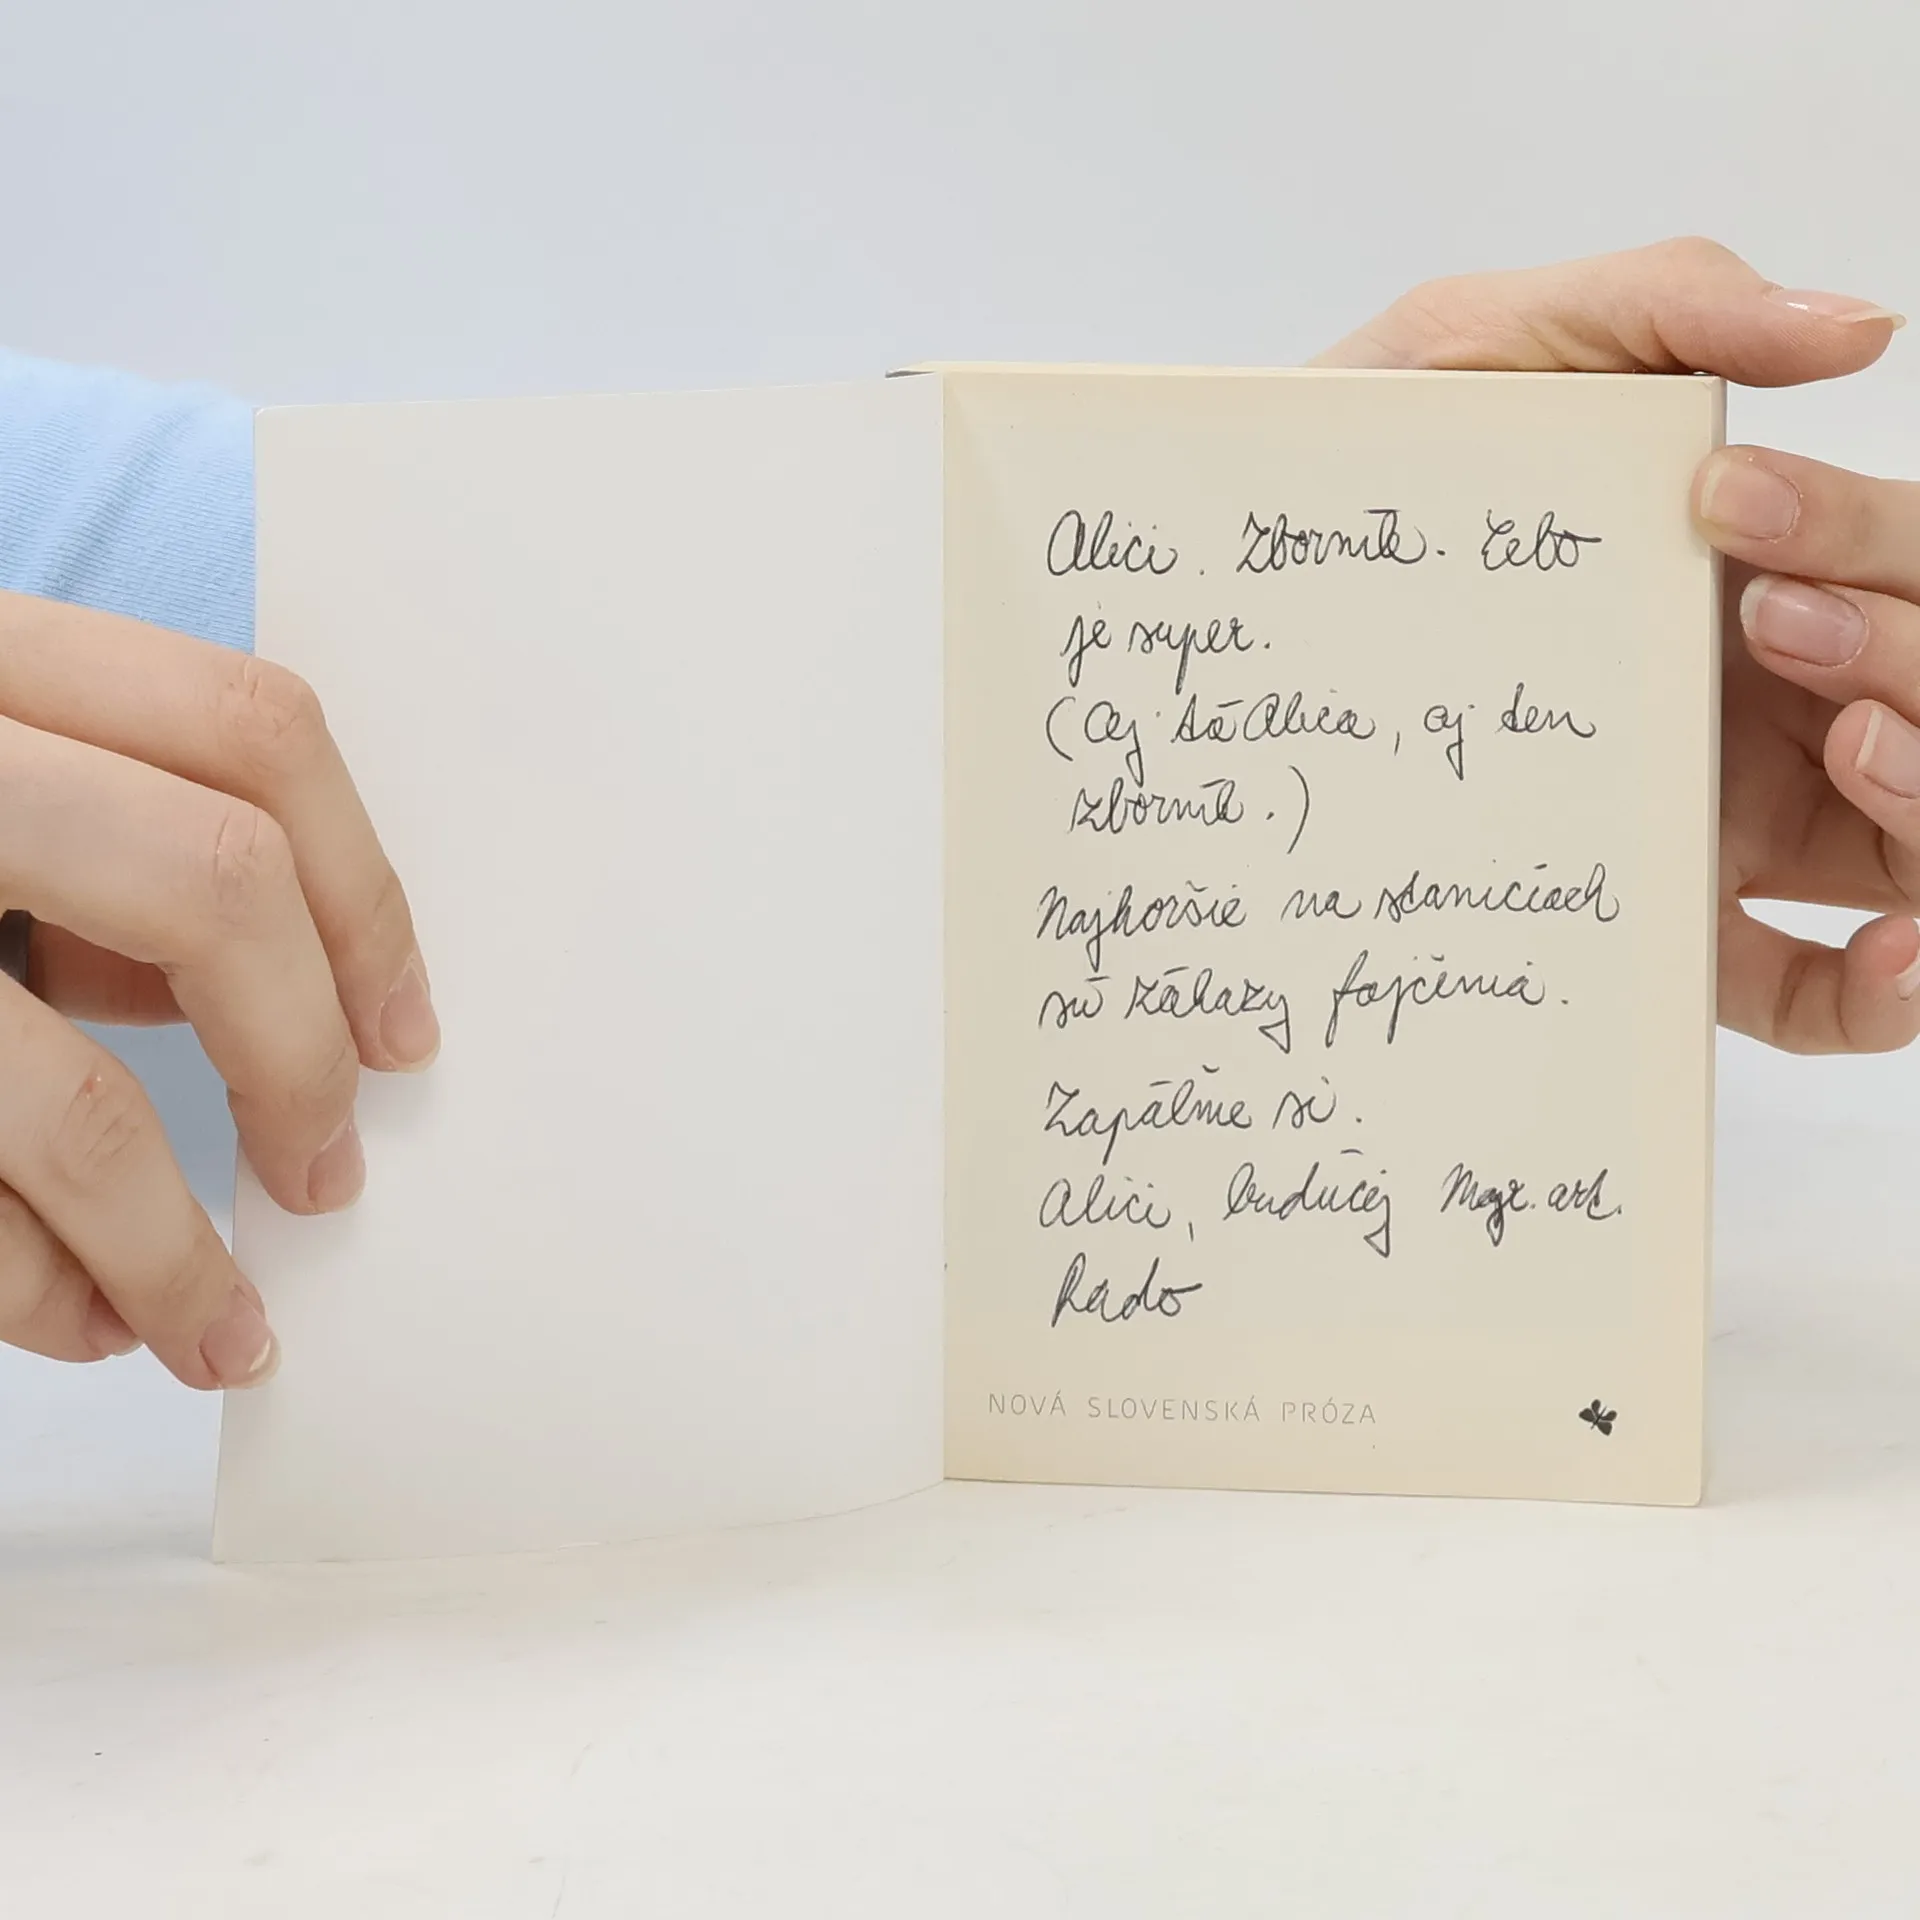 Alici. Zborník. Lebo
je super.
(Aj tá Alica, aj ten
zborník.)
Najhoršie na staniciach
sú zákazy fajčenia.
Zapáľme si.
Alici, budúcej Mgr. art.
Rado
NOVÁ SLOVENSKÁ PRÓZA